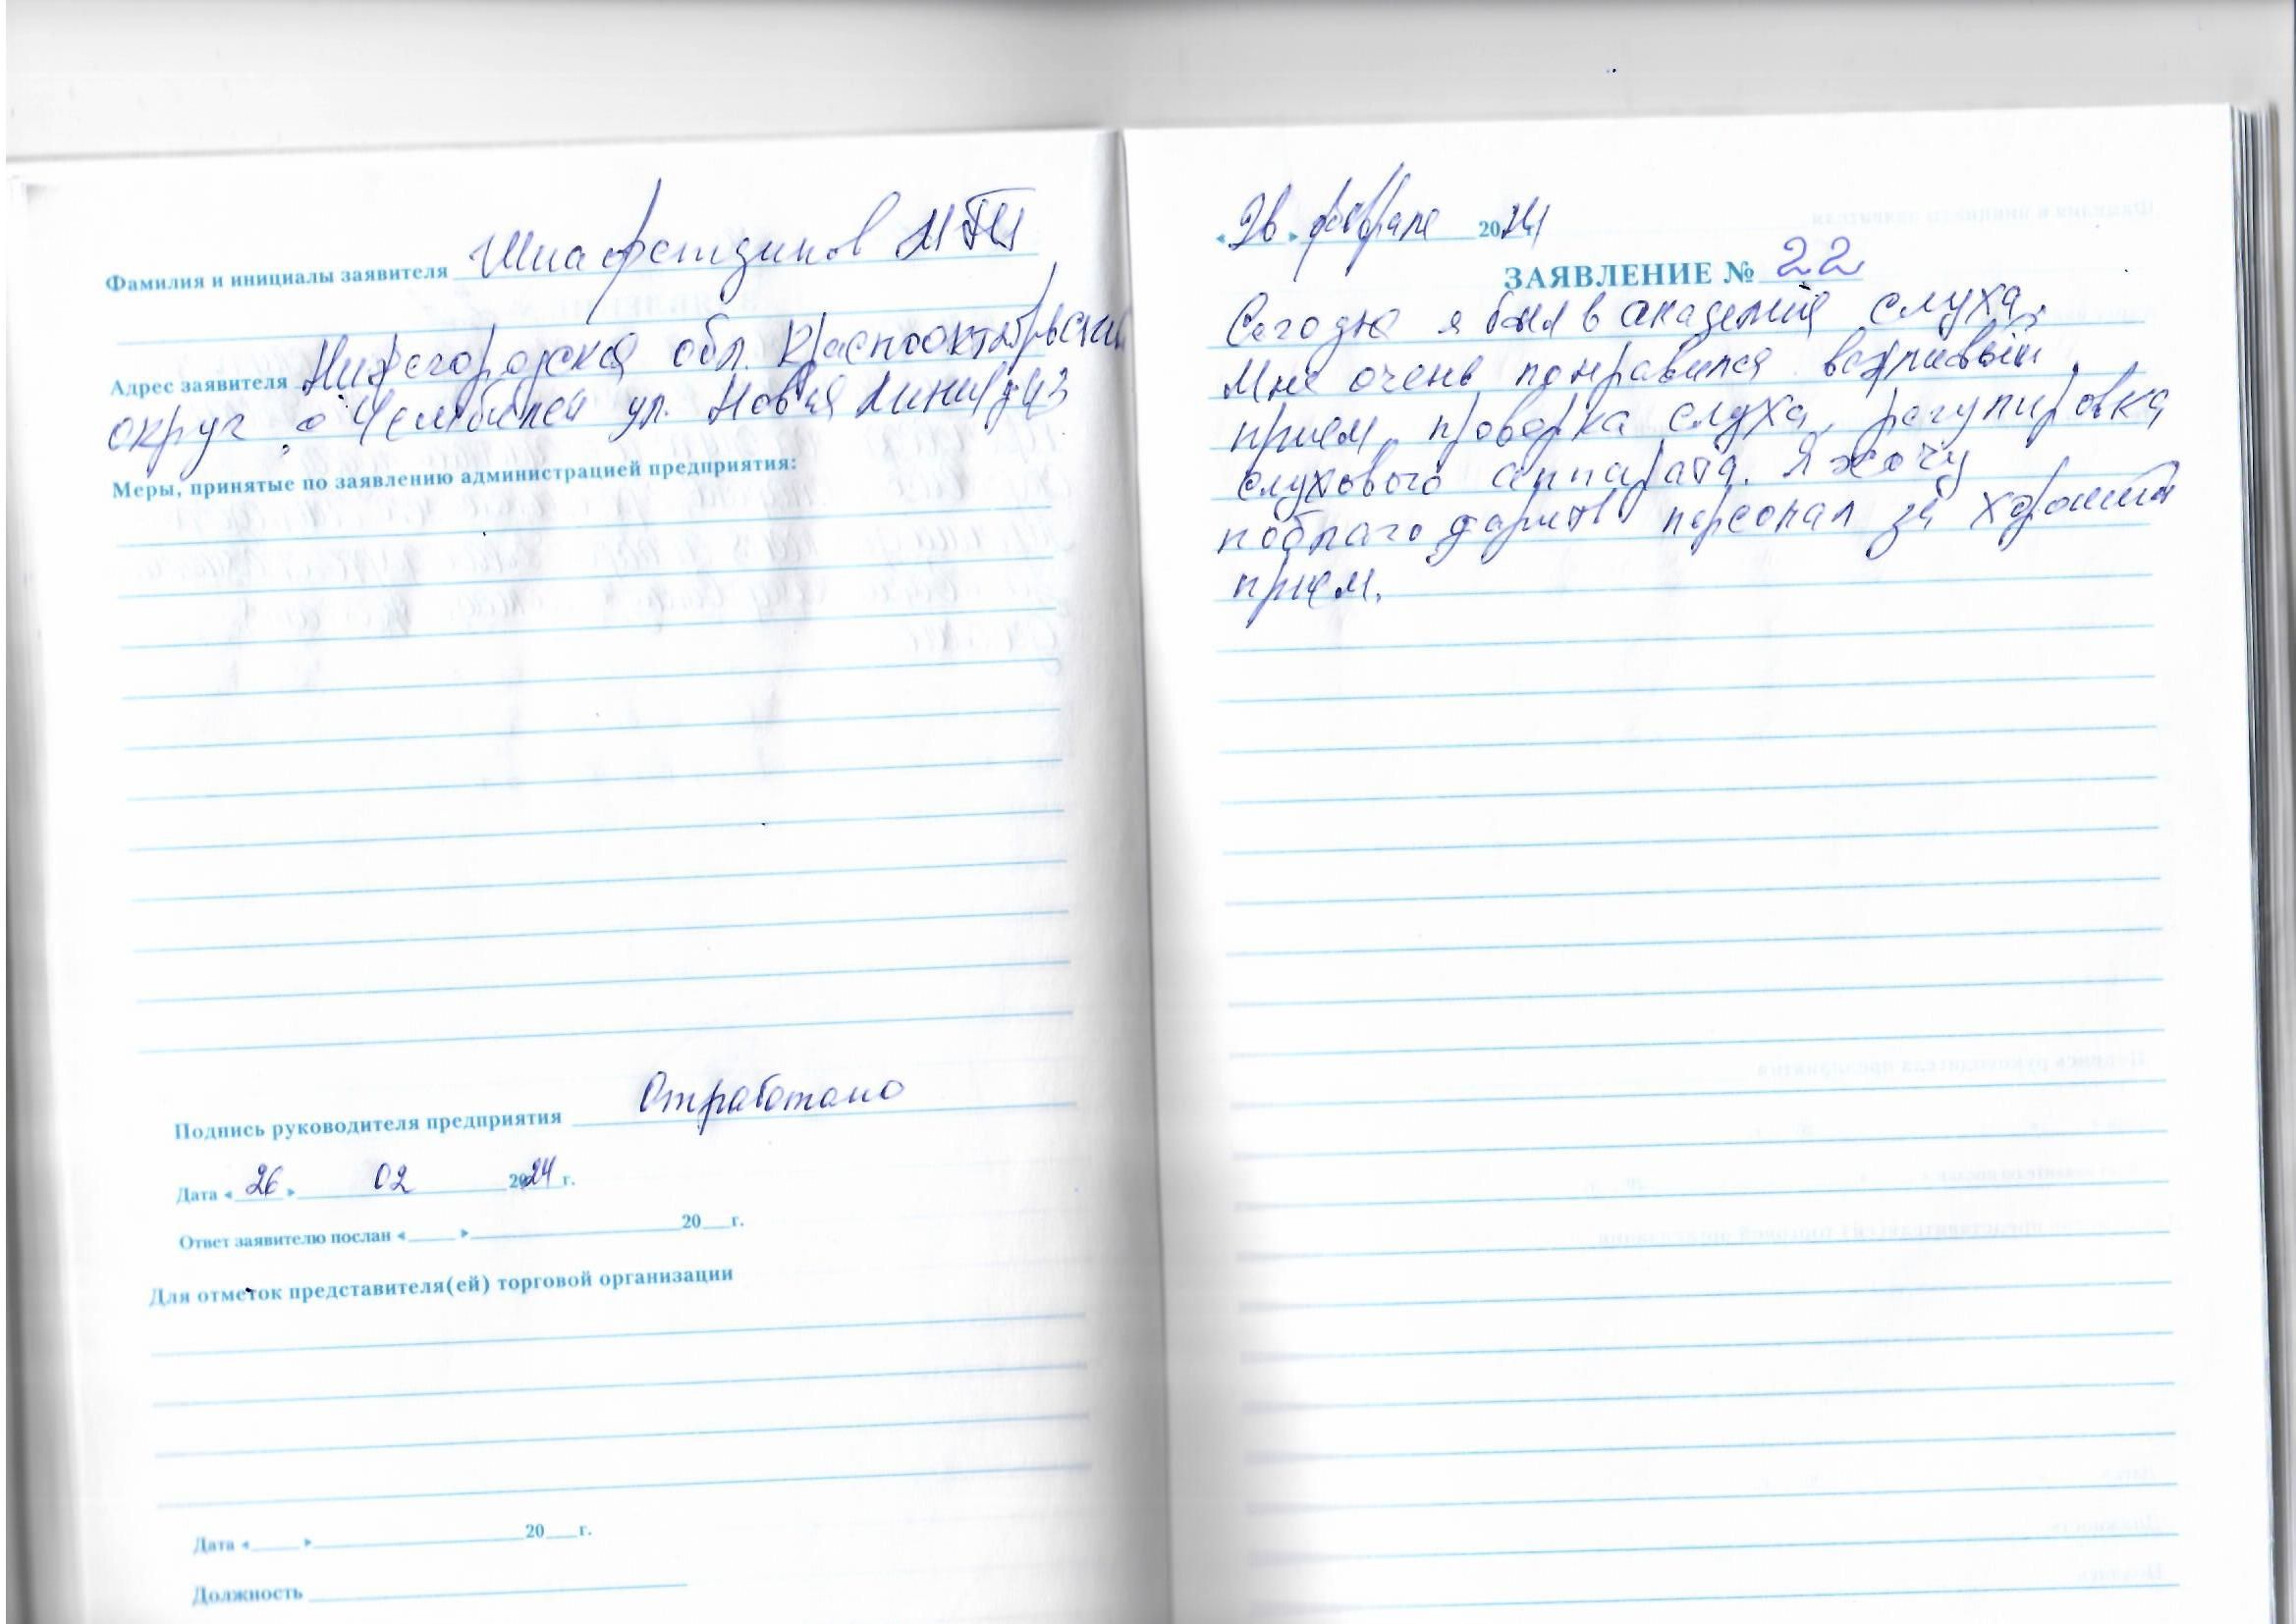 Фамилия и инициалы заявителя
Адрес заявителя Нижегородская обл. Краснооктябрьский
округ, с Чембилей ул. Новая Линия д 43
Меры, принятые по заявлению администрацией предприятия:
Подпись руководителя предприятия Отработано
Дата « 26 » 02 2024 г.
Ответ заявителю послан « » 20 г.
Для отметок представителя(ей) торговой организации
Дата « » 20 г.
Должность
« 26 » февраля 2024
ЗАЯВЛЕНИЕ № 22
Сегодня я был в академия слуха.
Мне очень понравился вежливый
прием, проверка слуха, регулировка
слухового аппарата. Я хочу
поблагодарить персонал за хороший
прием.